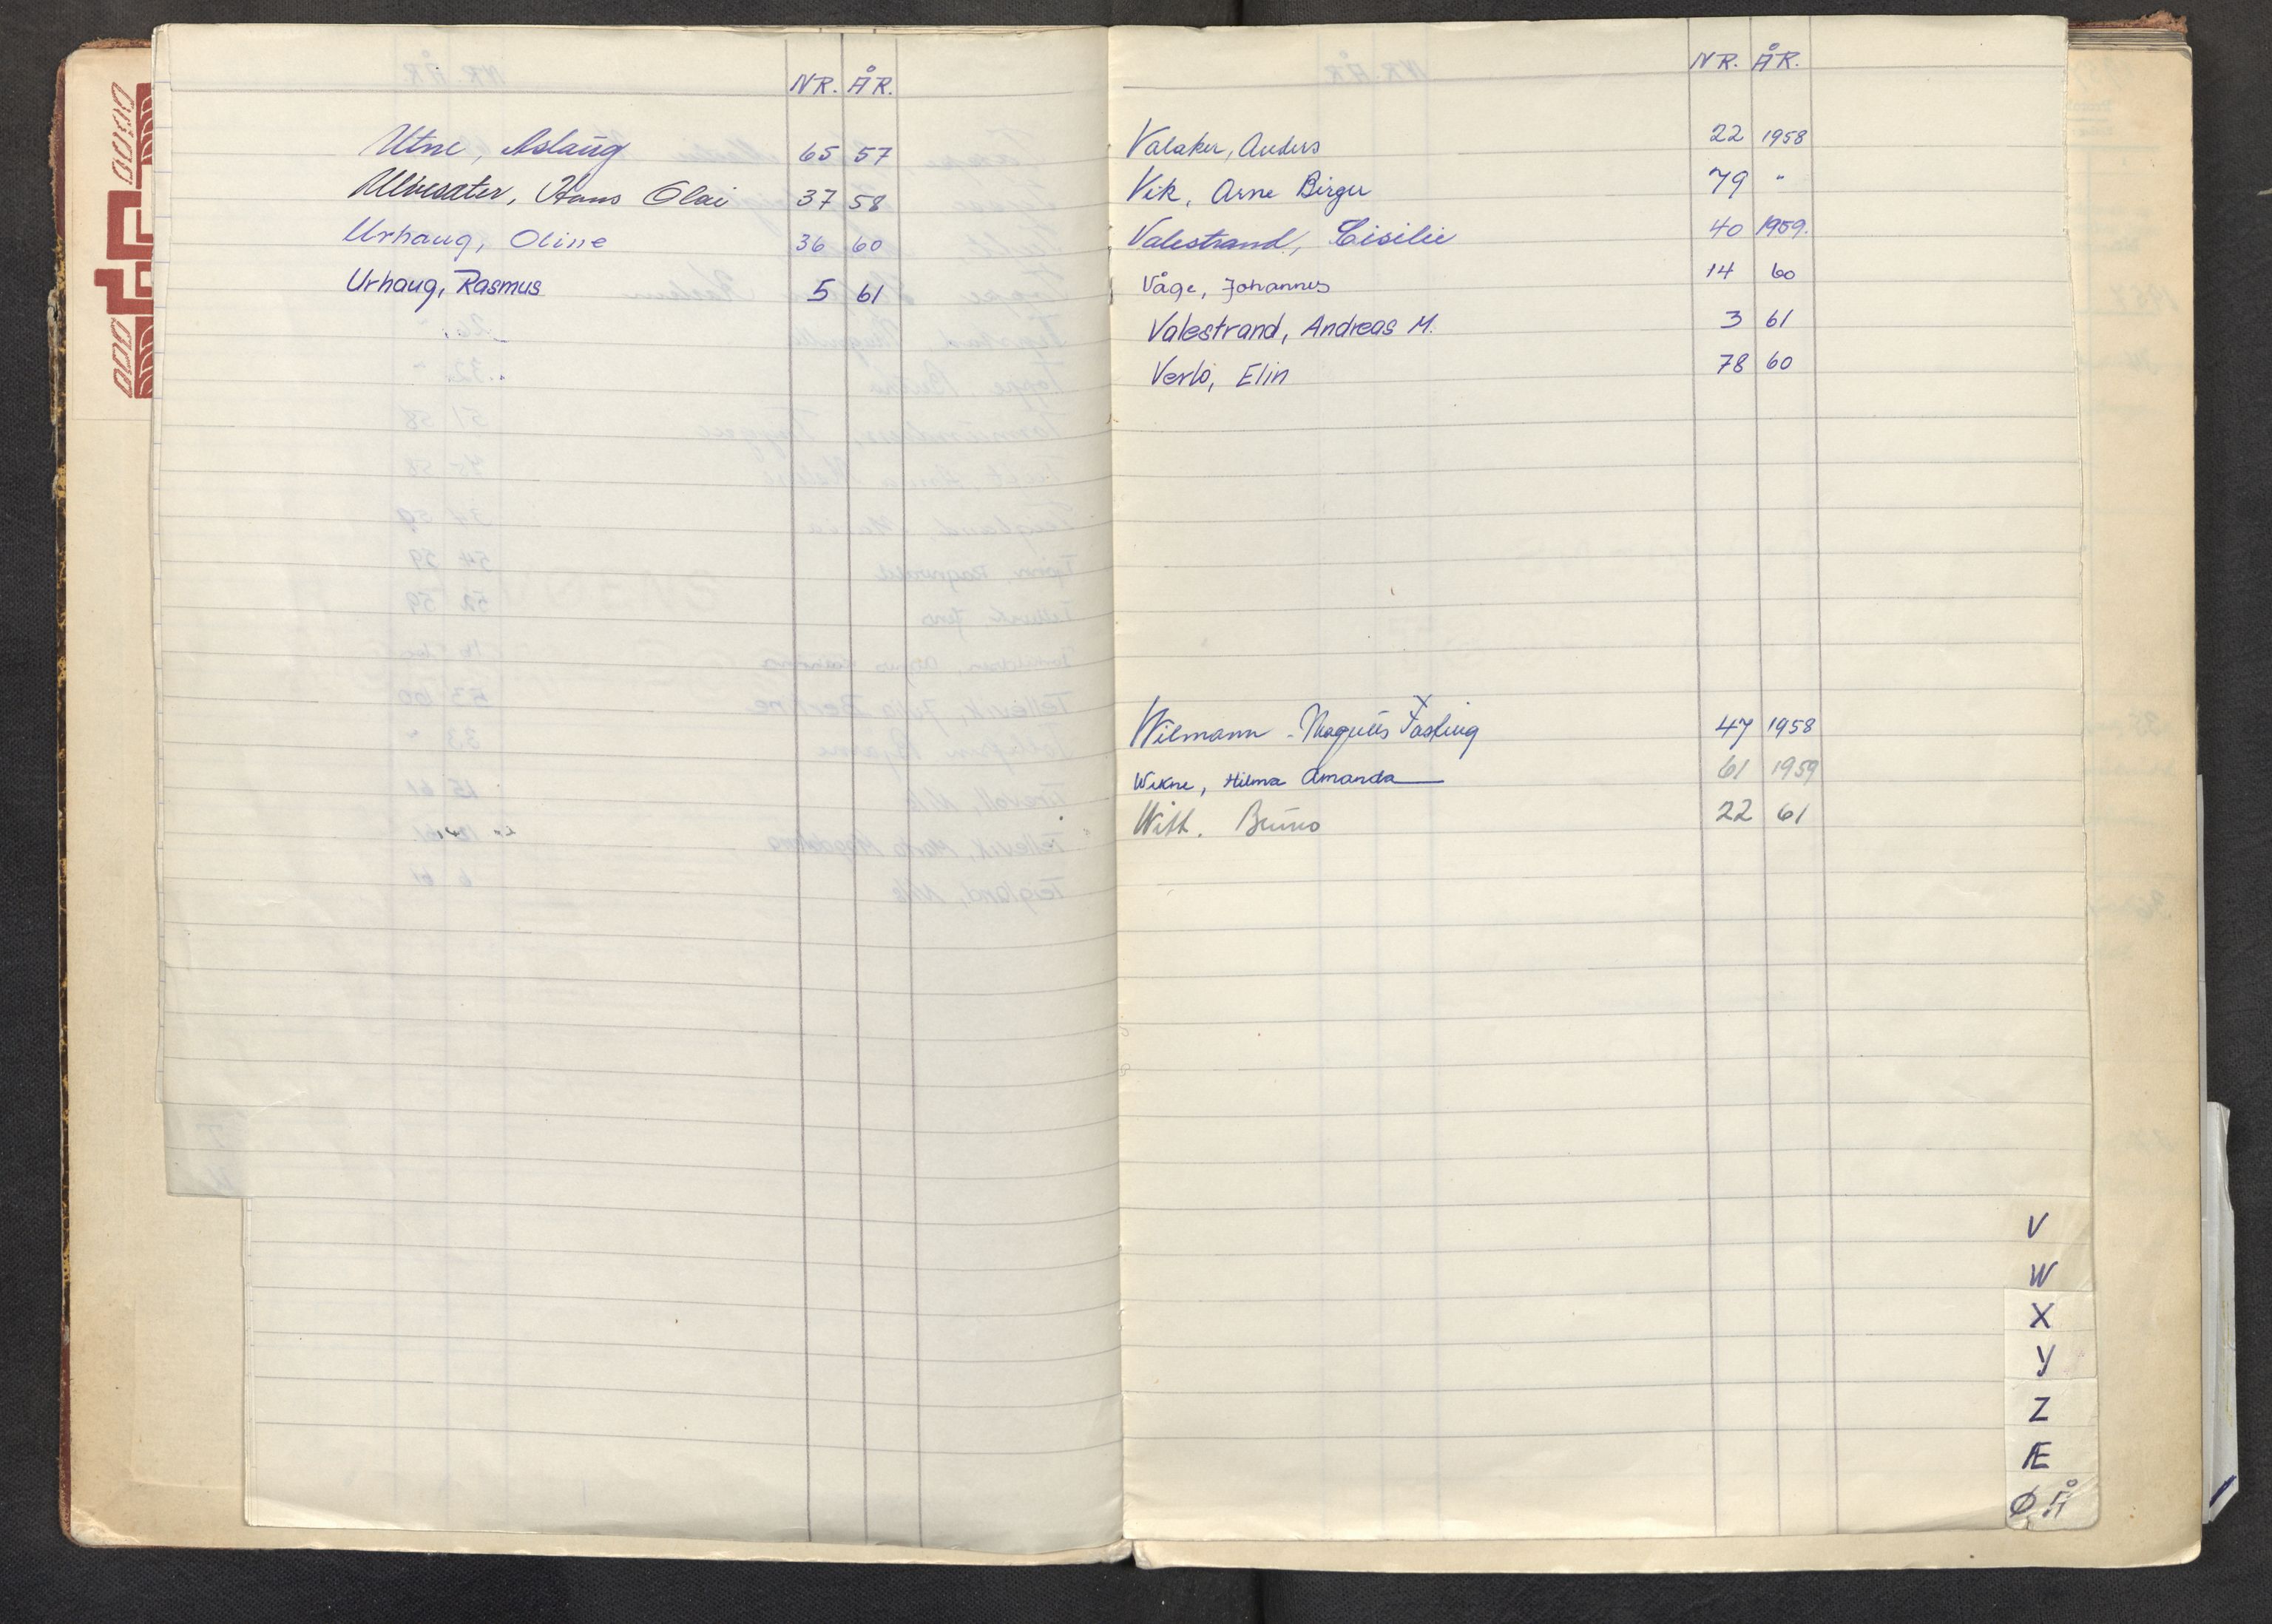 NR. ÅR.
Utne, Aslaug 65 57
Ulvesæter, Hans Olai 37 58
Urhaug, Oline 36 60
Urhaug, Rasmus 5 61
NR. ÅR.
Valaker, Anders 22 1958
Vik, Arne Birger 79 "
Valestrand, Cisilie 40 1959.
Våge, Johannes 14 60
Valestrand, Andreas M. 3 61
Verlo, Elin 78 60
Wilmann - Magnus Fasting 47 1958
Wikne, Hilma Amanda 61 1959
Witt. Bruno 22 61
V
W
X
Y
Z
Æ
Ø Å